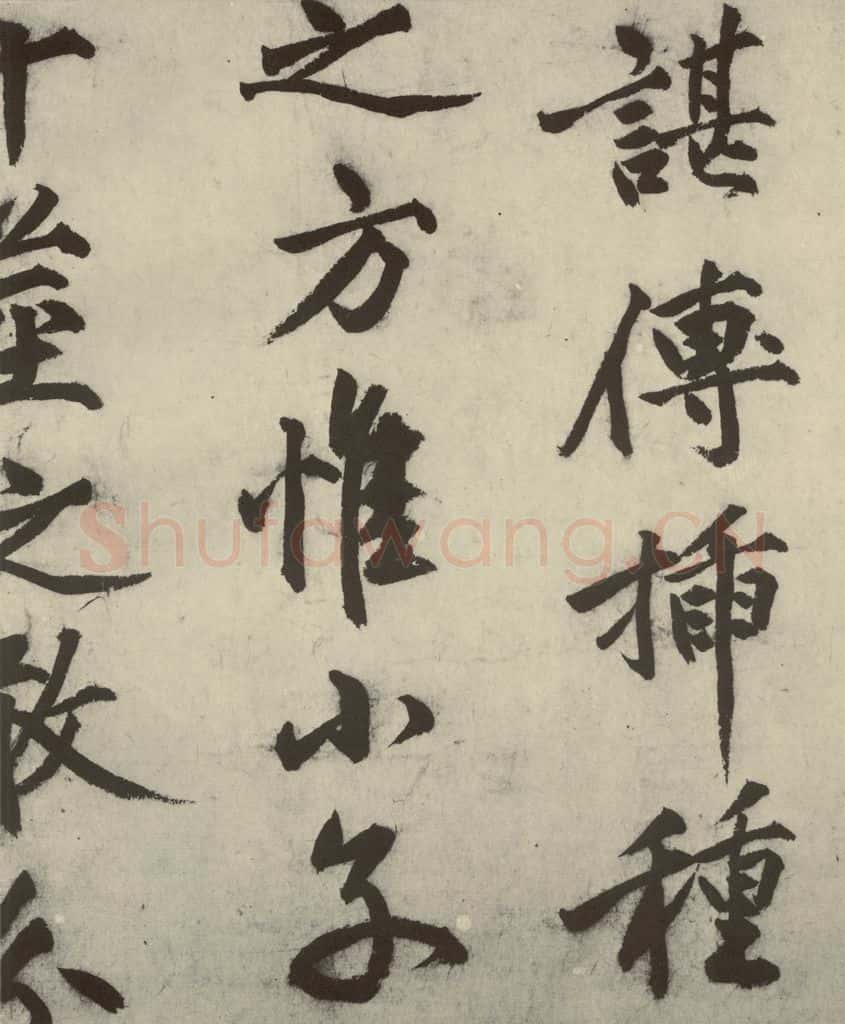 諶傳插種
之方惟小子
十莖之分
Shufawang.CN